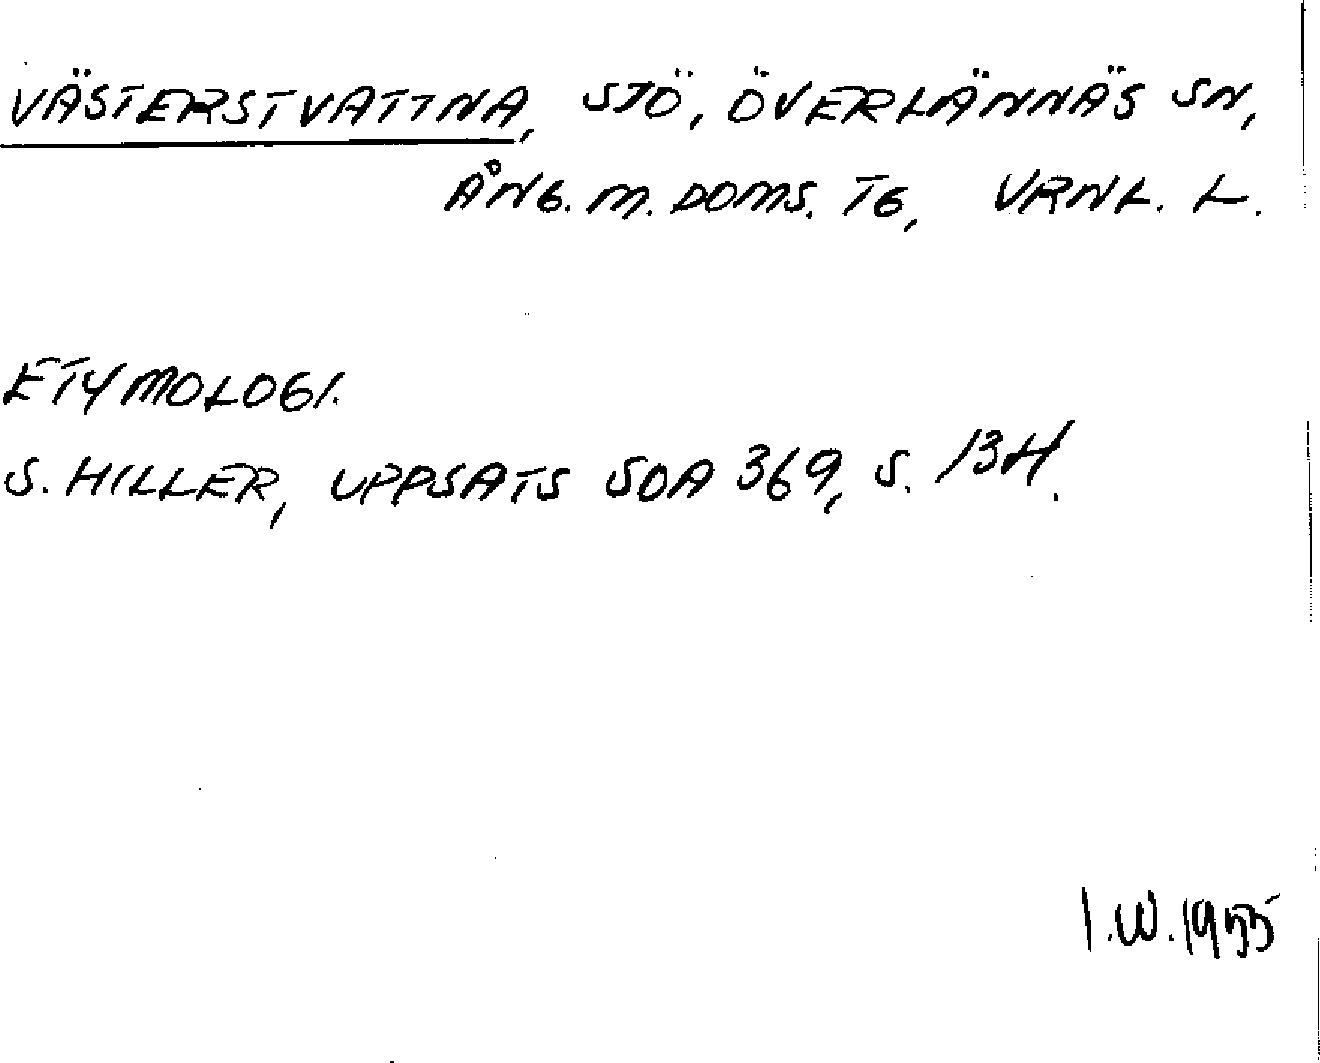 VÄSTERSTVATTNA, SJÖ, ÖVERLÄNNÄS SN,
ÅNG. M. DOMS. TG, VRNL. L.
ETYMOLOGI.
S. HILLER, UPPSATS SOA 369, S. 134.
I.W. 1955